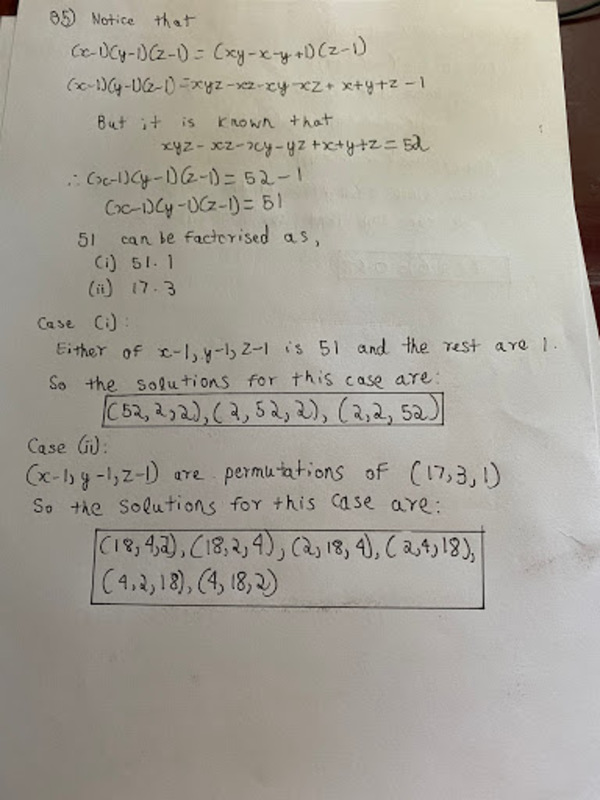 35) Notice that
(x-1)(y-1)(z-1) = (xy-x-y+1)(z-1)
(x-1)(y-1)(z-1) = xyz-xz-xy-xz+x+y+z-1
But it is known that
xyz-xz-xy-yz+x+y+z=52
∴ (x-1)(y-1)(z-1) = 52-1
(x-1)(y-1)(z-1) = 51
51 can be factorised as,
(i) 51.1
(ii) 17.3
Case (i):
Either of x-1, y-1, z-1 is 51 and the rest are 1.
So the solutions for this case are:
(52,2,2), (2,52,2), (2,2,52)
Case (ii):
(x-1, y-1, z-1) are permutations of (17,3,1)
So the solutions for this case are:
(18,4,2), (18,2,4), (2,18,4), (2,4,18),
(4,2,18), (4,18,2)